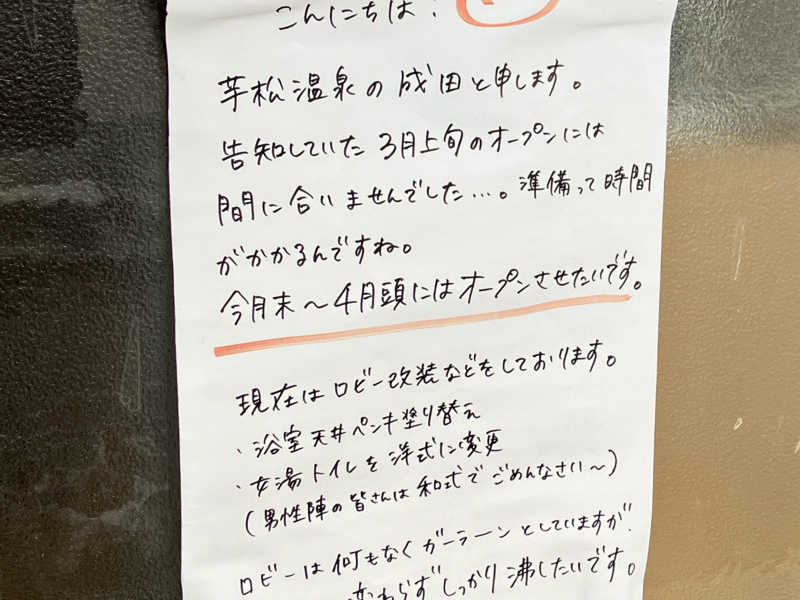 こんにちは!
芋松温泉の成田と申します。
告知していた3月上旬のオープンには
間に合いませんでした…。準備って時間
がかかるんですね。
今月末〜4月頭にはオープンさせたいです。
現在はロビー改装などをしております。
・浴室天井ペンキ塗り替え
・女湯トイレを洋式に変更
(男性陣の皆さんは和式でごめんなさい〜)
ロビーは何もなくガーラーンとしていますが
変わらずしっかり沸したいです。